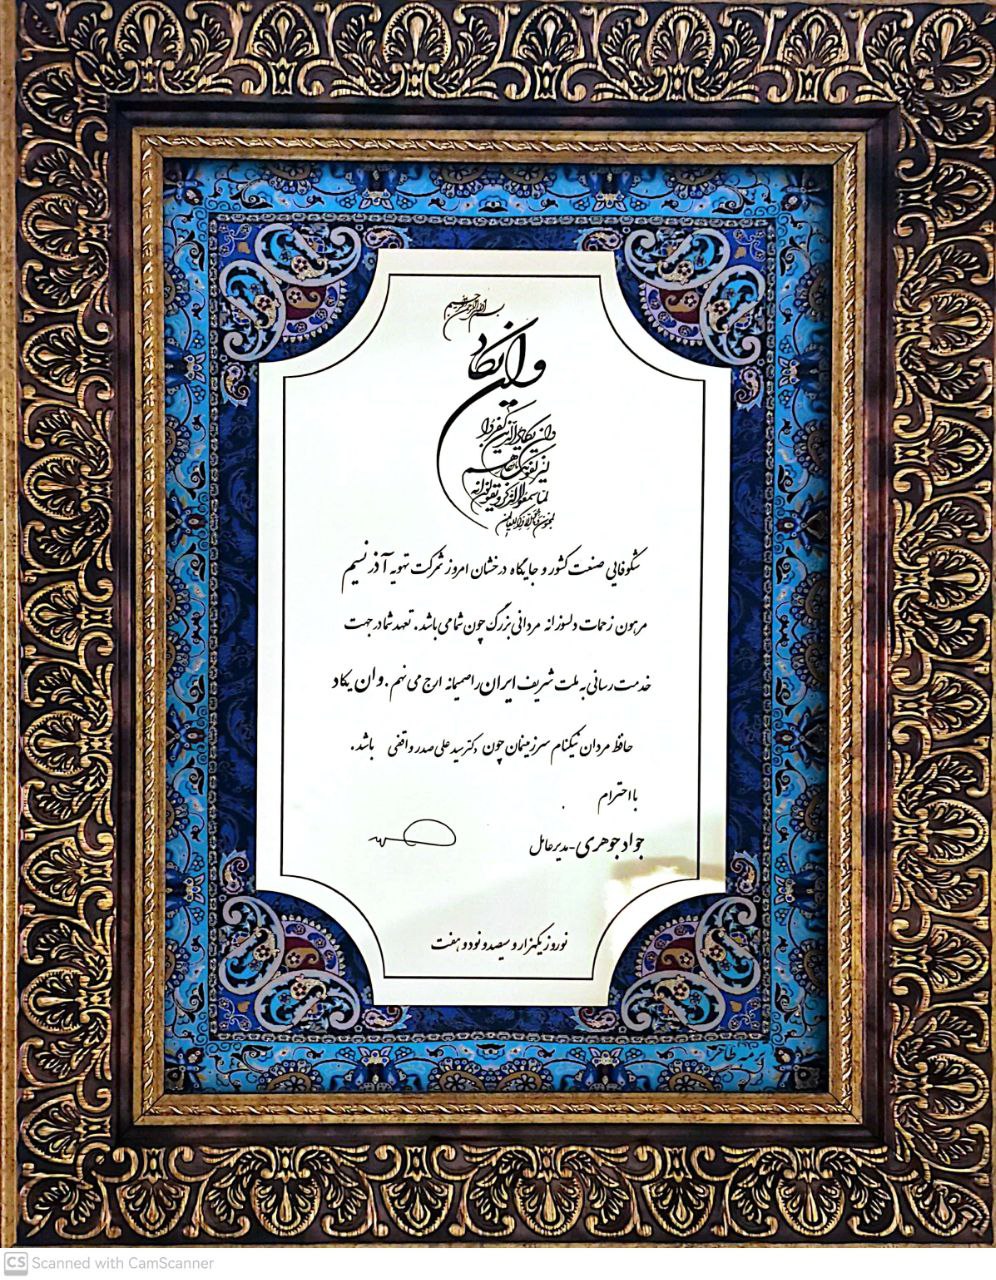 بسم الله الرحمن الرحیم
وان یکاد
وان یکاد الذین کفروا
لیزلقونک بابصارهم
لما سمعوا الذکر و یقولون انه
لمجنون و ما هو الا ذکر للعالمین
شکوفایی صنعت کشور و جایگاه درخشان امروز شرکت تهویه آذر نسیم
مرهون زحمات دلسوزانه مردانی بزرگ چون شما می باشد. تعهد شما در جهت
خدمت رسانی به ملت شریف ایران را صمیمانه ارج می نهم. وان یکاد
حافظ مردان نیکنام سرزمینمان چون دکتر سید علی صدر واقفی باشد.
با احترام
جواد جوهری - مدیرعامل
نوروز یکهزار و سیصد و نود و هفت
CS Scanned with CamScanner